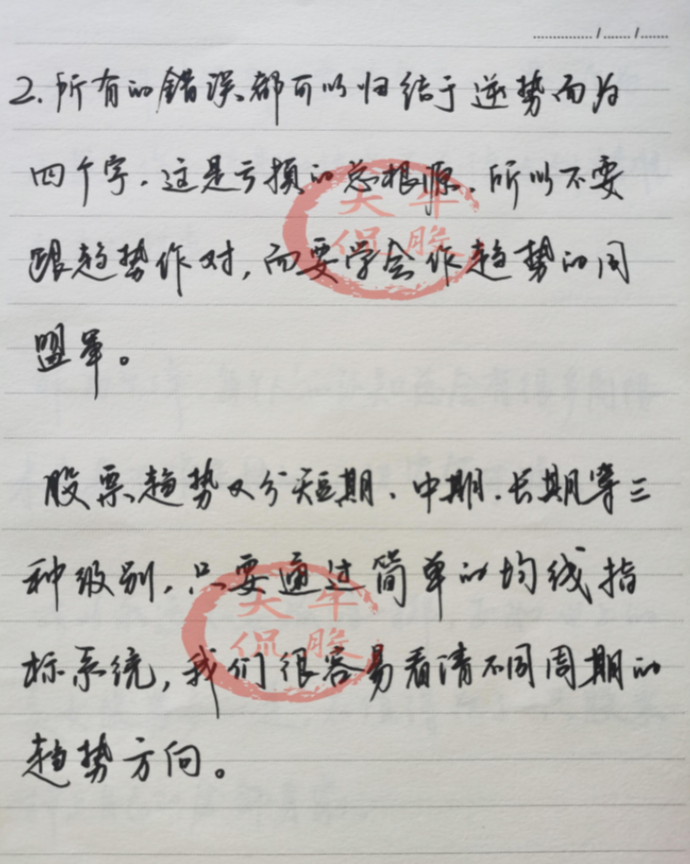 2.所有的错误、都可以归结于逆势而为
四个字.这是亏损的总根源.所以不要
跟趋势作对,而要学会作趋势的同
盟军。
股票趋势又分短期、中期、长期等三
种级别,只要通过简单的均线指
标系统,我们很容易看清不同周期的
趋势方向。
牛
侃股
牛
侃股